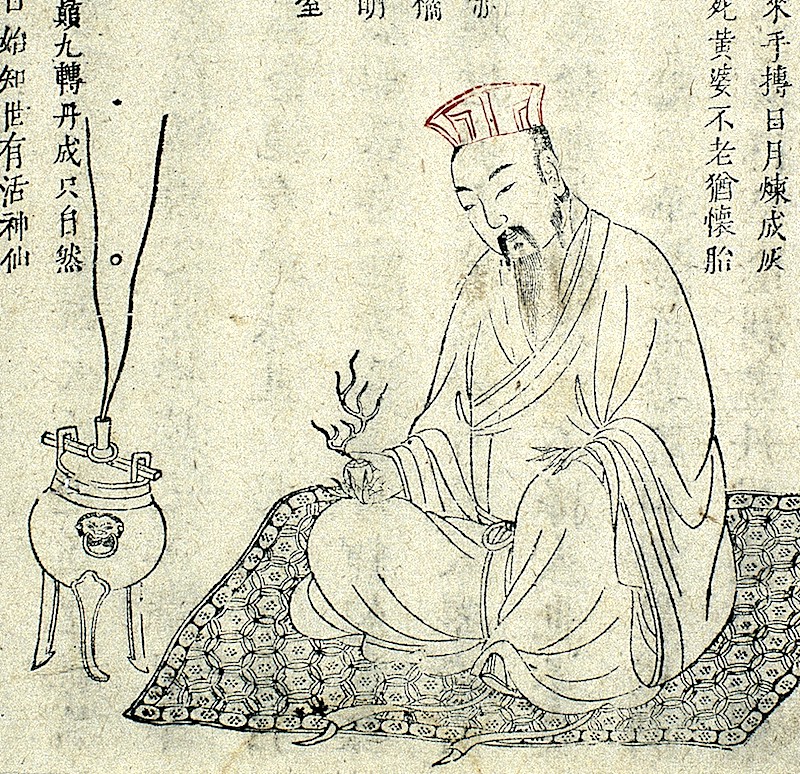 來手摶日月煉成灰
死黃婆不老猶懷胎
明
顛九轉丹成只自然
日始知世有活神仙